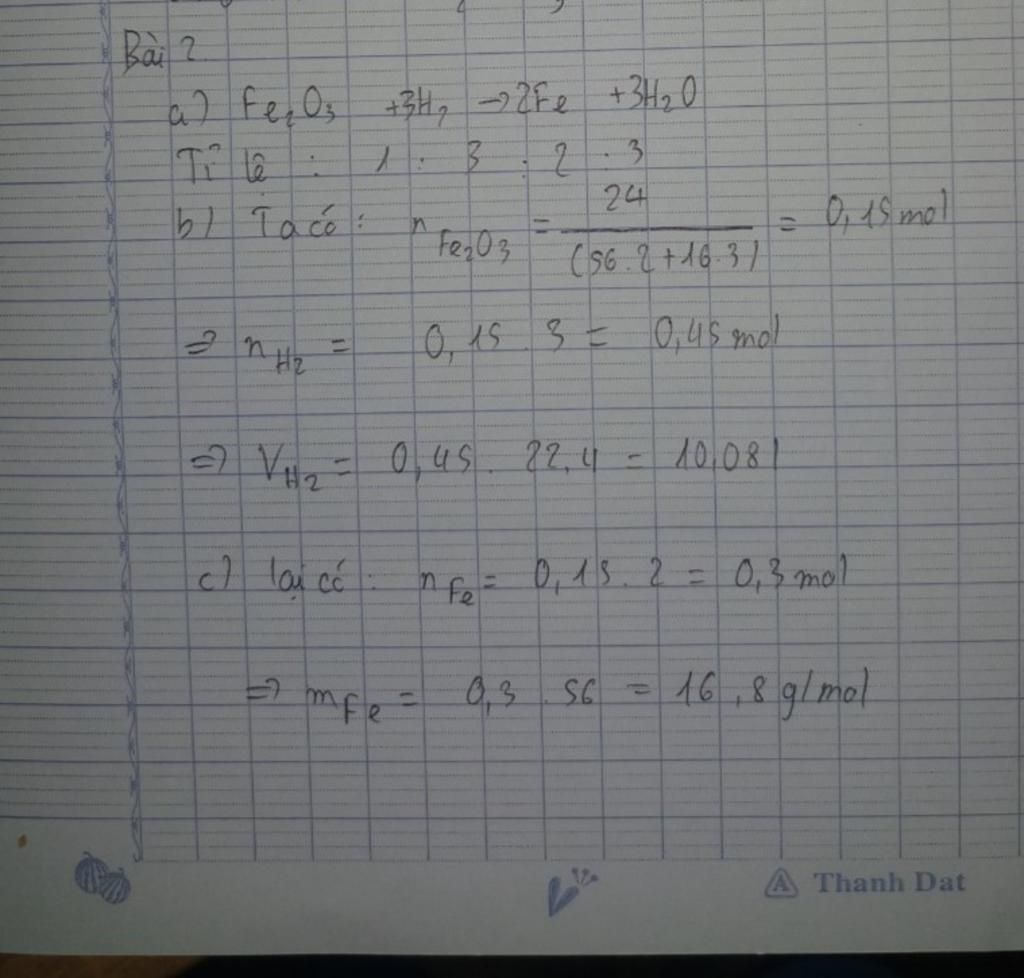 Bài 2
a) Fe₂O₃ +3H₂ → 2Fe +3H₂O
Tỉ lệ : 1 : 3 : 2 . 3
b) Ta có : n Fe₂O₃ = 24 / (56.2+16.3) = 0,15 mol
⇒ n H₂ = 0,15 . 3 = 0,45 mol
⇒ V H₂ = 0,45 . 22,4 = 10,08 l
c) lại có : n Fe = 0,15 . 2 = 0,3 mol
⇒ m Fe = 0,3 . 56 = 16,8 g/mol
Thanh Dat